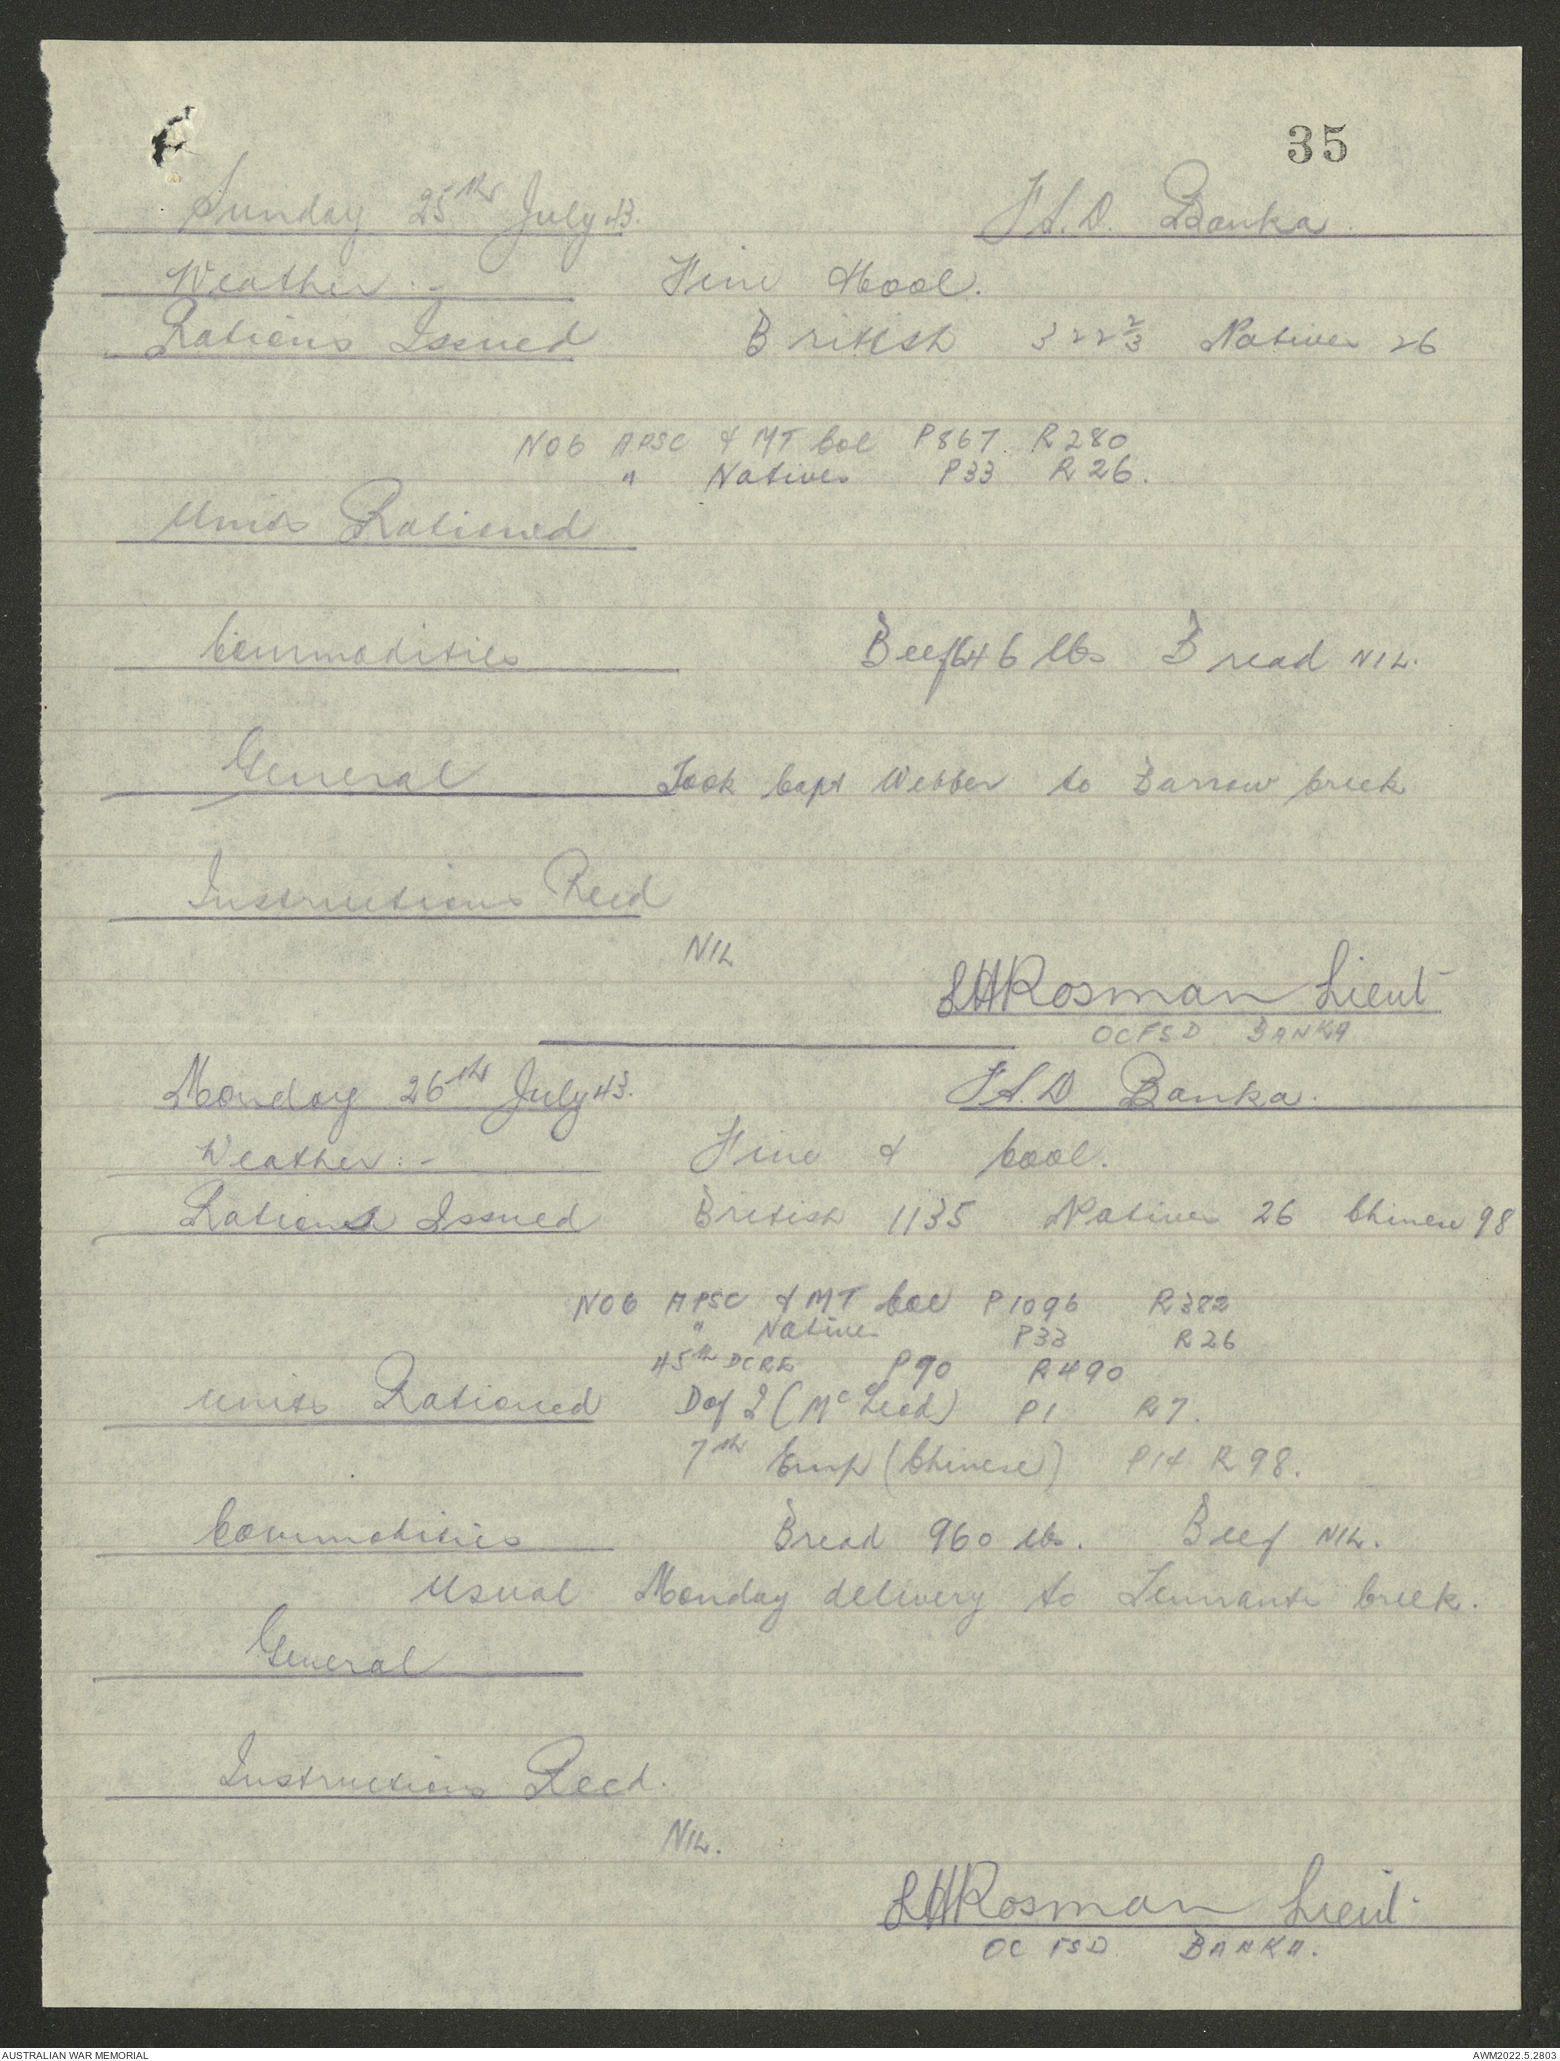 35
Sunday 25th July 43. F.S.D. Banka.
Weather:- Fine & Cool.
Rations Issued British 322 2/3 Natives 26
No 6 APSC & MT Col P867. R280
" Natives P33 R26.
Units Rationed
Commodities Beef 646 lbs Bread NIL.
General Took Capt Webber to Barrow Creek
Instructions Recd
NIL
Rosman Lieut
OC FSD BANKA
Monday 26th July 43. F.S.D Banka.
Weather:- Fine & Cool.
Rations Issued British 1135 Natives 26 Chinese 98
No 6 APSC & MT Col P1096 R382
" Natives P33 R26
45th DCRE P90 R490
Units Rationed D of I (McLeod) P1 R7.
7th Emp (Chinese) P14 R98.
Commodities Bread 960 lbs. Beef NIL.
Usual Monday delivery to Tennants Creek.
General
Instructions Recd.
NIL.
Rosman Lieut
OC FSD. BANKA.
AUSTRALIAN WAR MEMORIAL AWM2022.5.2803